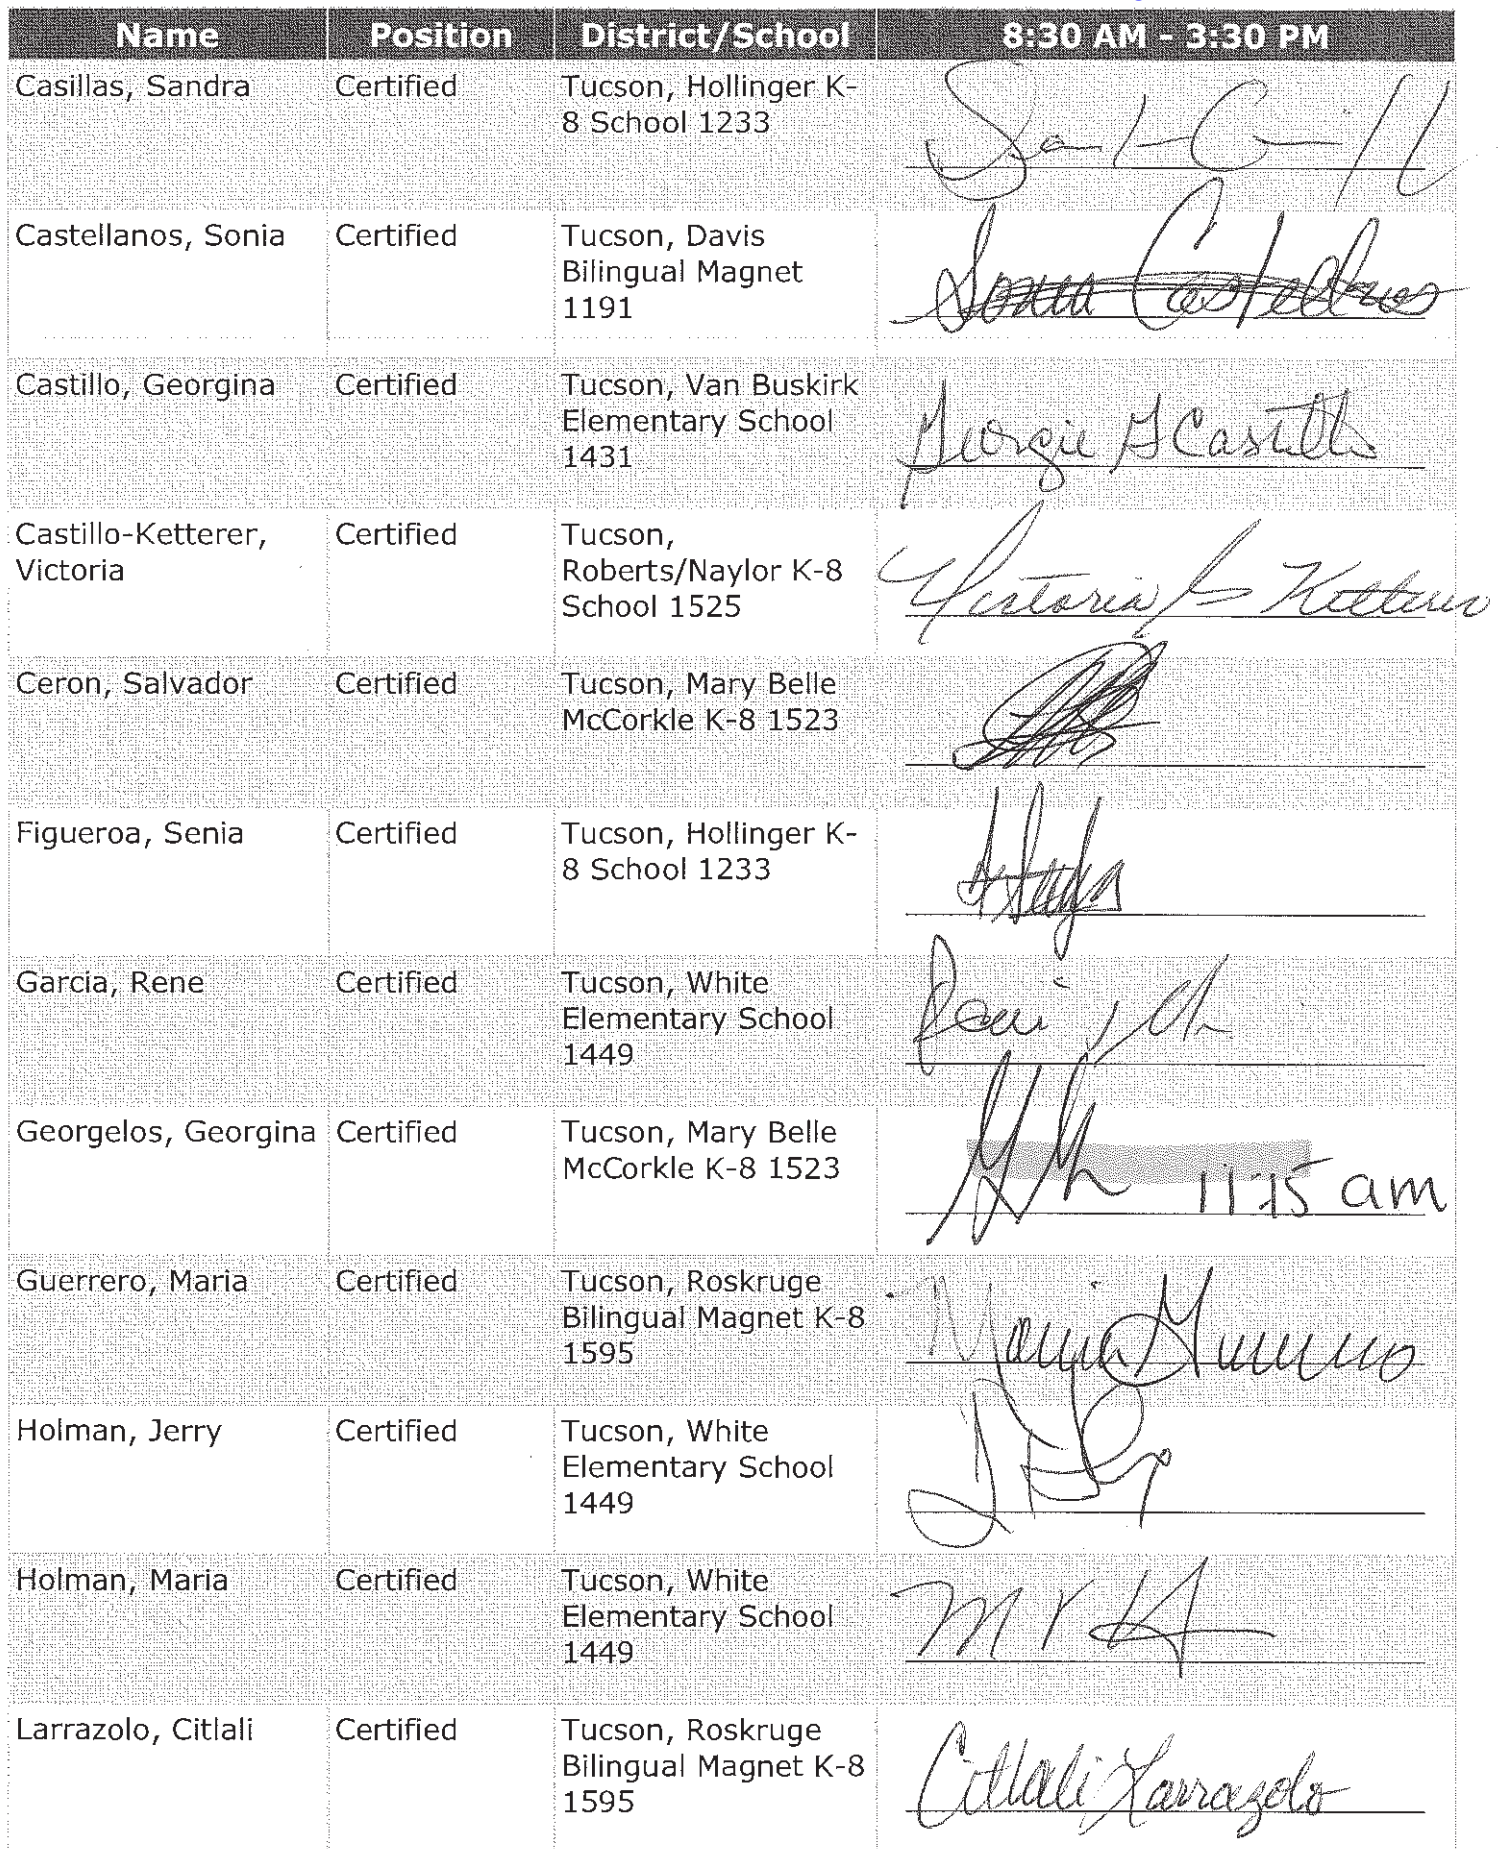 Name Position District/School 8:30 AM - 3:30 PM
Casillas, Sandra Certified Tucson, Hollinger K-
8 School 1233
Castellanos, Sonia Certified Tucson, Davis
Bilingual Magnet
1191
Sonia Castellanos
Castillo, Georgina Certified Tucson, Van Buskirk
Elementary School
1431
Georgie G Castillo
Castillo-Ketterer, Certified Tucson,
Victoria Roberts/Naylor K-8
School 1525
Victoria Ketterer
Ceron, Salvador Certified Tucson, Mary Belle
McCorkle K-8 1523
Figueroa, Senia Certified Tucson, Hollinger K-
8 School 1233
Garcia, Rene Certified Tucson, White
Elementary School
1449
Georgelos, Georgina Certified Tucson, Mary Belle
McCorkle K-8 1523
11:15 am
Guerrero, Maria Certified Tucson, Roskruge
Bilingual Magnet K-8
1595
Maria Guerrero
Holman, Jerry Certified Tucson, White
Elementary School
1449
Holman, Maria Certified Tucson, White
Elementary School
1449
Larrazolo, Citlali Certified Tucson, Roskruge
Bilingual Magnet K-8
1595
Citlali Larrazolo